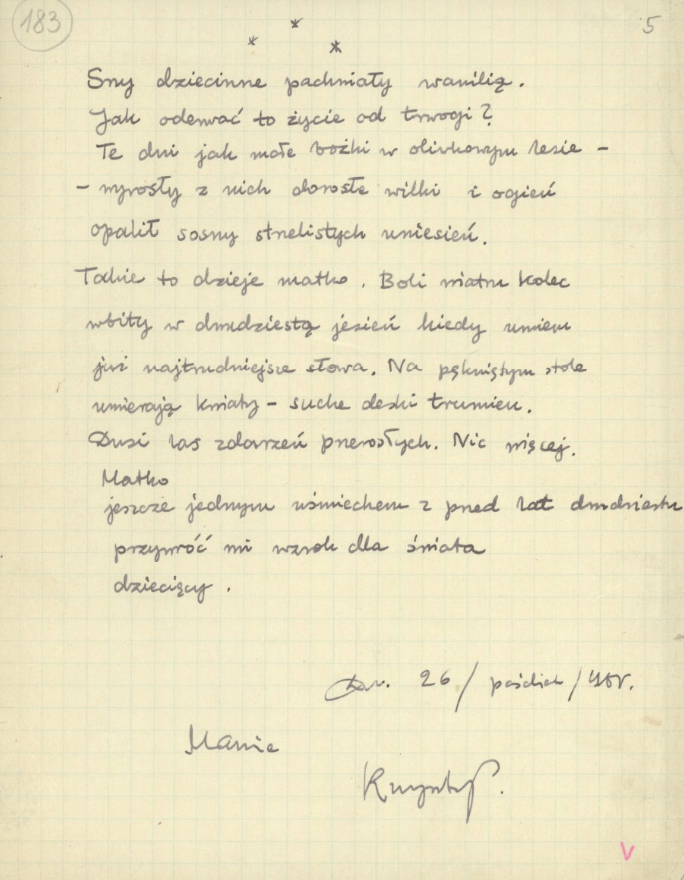 183
5
* * *
Sny dziecinne pachniały wanilią.
Jak oderwać to życie od trwogi?
Te dni jak małe bożki w oliwkowym lesie –
– wyrosły z nich dorosłe wilki i ogień
opalił sosny strzelistych uniesień.
Takie to dzieje matko. Boli wiatru kolec
wbity w dwudziestą jesień kiedy umiem
już najtrudniejsze słowa. Na pękniętym stole
umierają kwiaty – suche deski trumien.
Dusi las zdarzeń przerosłych. Nic więcej.
Matko
jeszcze jednym uśmiechem z przed lat dwudziestu
przywróć mi wzrok dla świata
dziecięcy.
26/ paździer /
Mamie
Krzysztof.
V